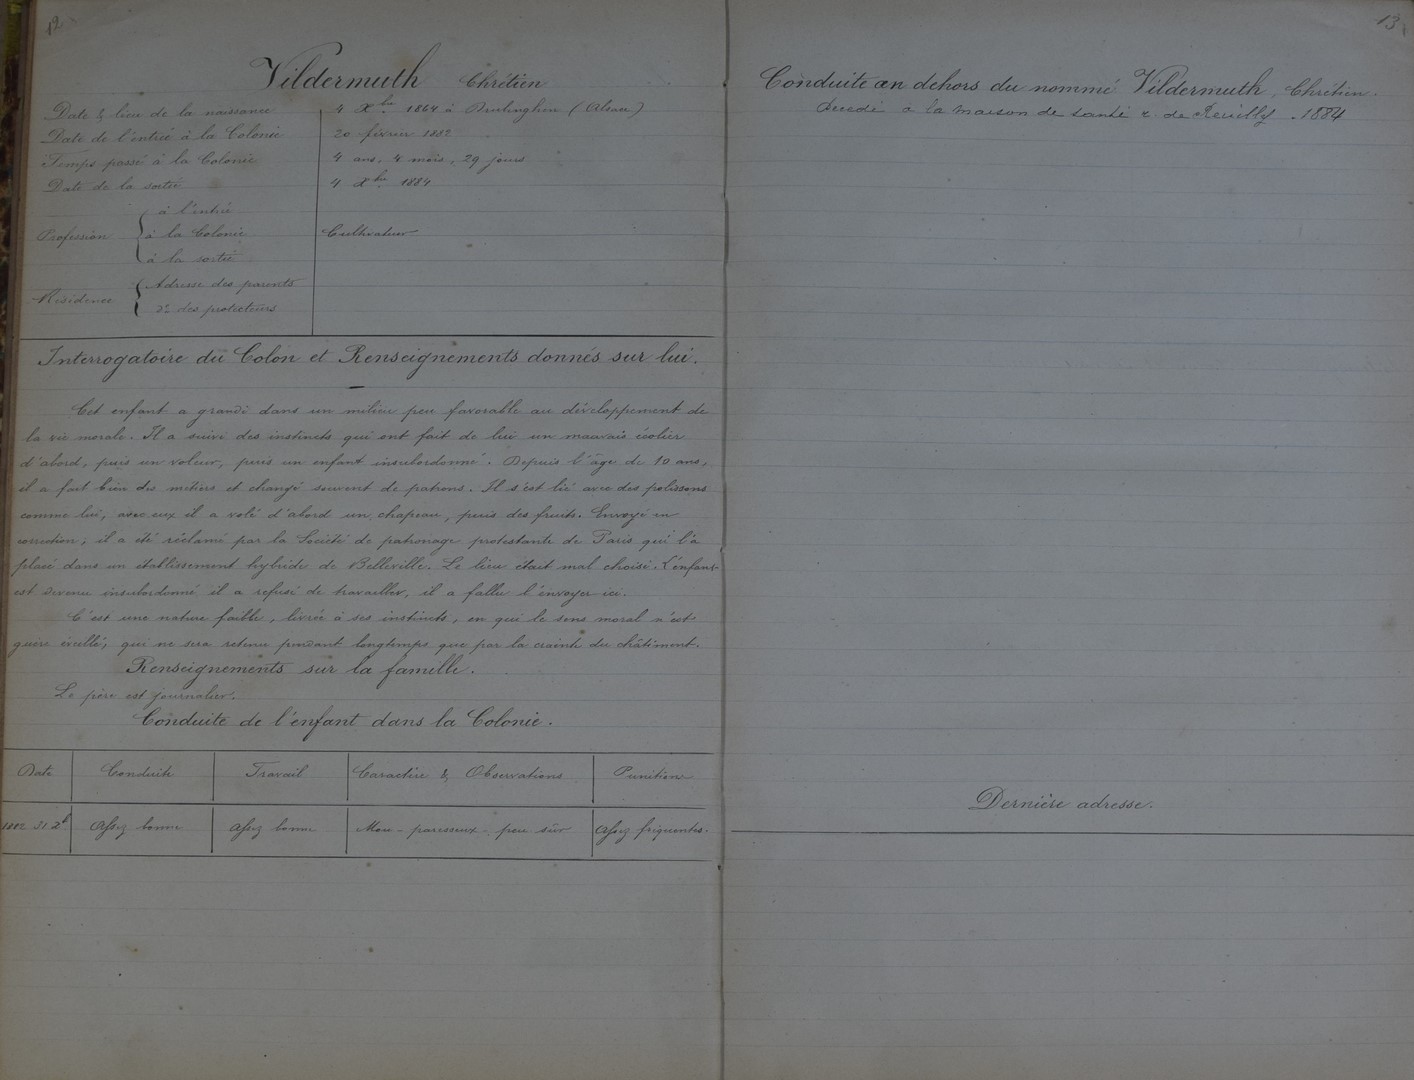 12
Vildermuth Chrétien
Date & lieu de la naissance 4 Xbre 1864 à (Alsace)
Date de l'entrée à la Colonie 20 février 1882
Temps passé à la Colonie 4 ans, 4 mois, 29 jours
Date de la sortie 4 Xbre 1884
Profession
à l'entrée
à la Colonie Cultivateur
à la sortie
Résidence
Adresse des parents
do des protecteurs
Interrogatoire du Colon et Renseignements donnés sur lui.
Cet enfant a grandi dans un milieu peu favorable au développement de
la vie morale. Il a suivi des instincts qui ont fait de lui un mauvais écolier
d'abord, puis un voleur, puis un enfant insubordonné. Depuis l'âge de 10 ans,
il a fait bien des métiers et changé souvent de patrons. Il s'est lié avec des polissons
comme lui, avec eux il a volé d'abord un chapeau, puis des fruits. Envoyé en
correction, il a été réclamé par la Société de patronage protestante de Paris qui l'a
placé dans un établissement hybride de Belleville. Le lieu était mal choisi. L'enfant
est devenu insubordonné il a refusé de travailler, il a fallu l'envoyer ici.
C'est une nature faible, livrée à ses instincts, en qui le sens moral n'est
guère éveillé, qui ne sera retenu pendant longtemps que par la crainte du châtiment.
Renseignements sur la famille.
Le père est journalier.
Conduite de l'enfant dans la Colonie.
Date Conduite Travail Caractère & Observations Punitions
1882 31 Xb Assez bonne Assez bonne Mou - paresseux - peu sûr Assez fréquentes.
13
Conduite en dehors du nommé Vildermuth, Chrétien.
Décédé à la maison de santé r. de Reuilly . 1884
Dernière adresse.